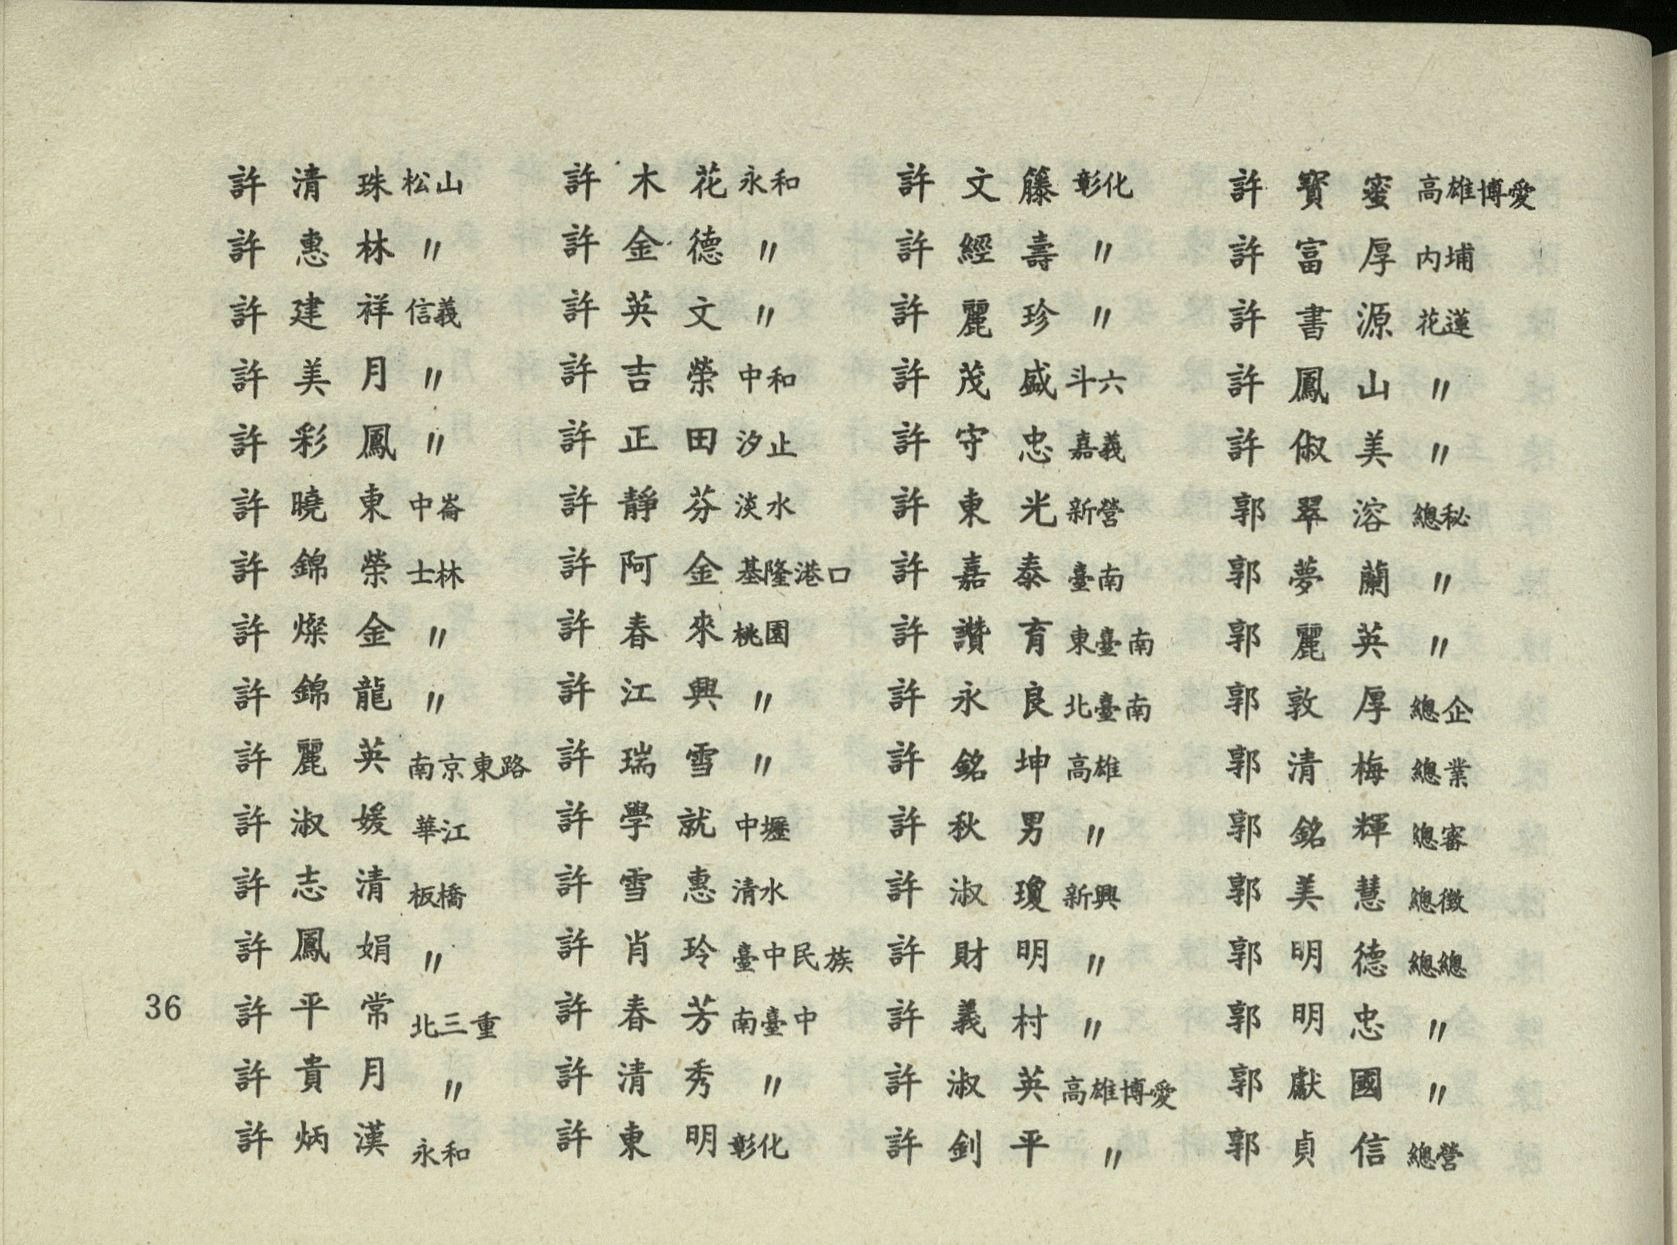 許清珠 松山
許惠林 〃
許建祥 信義
許美月 〃
許彩鳳 〃
許曉東 中崙
許錦榮 士林
許燦金 〃
許錦龍 〃
許麗英 南京東路
許淑媛 華江
許志清 板橋
許鳳娟 〃
許平常 北三重
許貴月 〃
許炳漢 永和
許木花 永和
許金德 〃
許英文 〃
許吉榮 中和
許正田 汐止
許靜芬 淡水
許阿金 基隆港口
許春來 桃園
許江興 〃
許瑞雪 〃
許學就 中壢
許雪惠 清水
許肖玲 臺中民族
許春芳 南臺中
許清秀 〃
許東明 彰化
許文籐 彰化
許經壽 〃
許麗珍 〃
許茂盛 斗六
許守忠 嘉義
許東光 新營
許嘉泰 臺南
許讚育 東臺南
許永良 北臺南
許銘坤 高雄
許秋男 〃
許淑瓊 新興
許財明 〃
許義村 〃
許淑英 高雄博愛
許釗平 〃
許寶蜜 高雄博愛
許富厚 內埔
許書源 花蓮
許鳳山 〃
許俶美 〃
郭翠溶 總秘
郭夢蘭 〃
郭麗英 〃
郭敦厚 總企
郭清梅 總業
郭銘輝 總審
郭美慧 總徵
郭明德 總總
郭明忠 〃
郭獻國 〃
郭貞信 總營
36